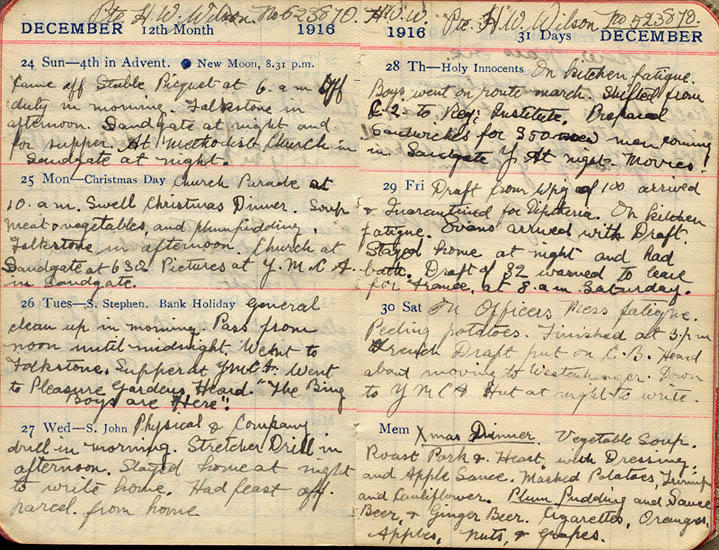 Pte. H. W. Wilson. No 523870.
DECEMBER 12th Month 1916
24 Sun—4th in Advent. New Moon, 8.31 p.m.
Came off Stable Picquet at 6. a.m. Off
duty in morning. Folkstone in
afternoon. Sandgate at night and
for supper. At Methodist Church in
Sandgate at night.
25 Mon—Christmas Day Church Parade at
10. a.m. Swell Christmas Dinner. Soup
meat & vegetables, and plum pudding.
Folkstone in afternoon. Church at
Sandgate at 630. Pictures at Y. M. C. A.
in Sandgate.
26 Tues—S. Stephen. Bank Holiday General
clean up in morning. Pass from
noon until midnight. Went to
Folkstone. Supper at YMCA. Went
to Pleasure Gardens Heard. "The Bing
Boys are Here"!
27 Wed—S. John Physical & Company
drill in morning. Stretcher Drill in
afternoon. Stayed home at night
to write home. Had feast off
parcel from home
H.W.W. Pte. H. W. Wilson No 523870.
1916 31 Days DECEMBER
28 Th—Holy Innocents On kitchen fatigue.
Boys went on route march. Shifted from
C-2- to Reg: Institute. Prepared
sandwiches for 350 men coming
in. Sandgate Y. At night. Movies!
29 Fri Draft from Wpg of 100 arrived
& Quarantined for Diptheria. On kitchen
fatigue. Evans arrived with Draft.
Stayed home at night and had
bath. Draft of 32 warned to leave
for France, at 8. a.m. Saturday.
30 Sat On Officers Mess fatigue.
Peeling potatoes. Finished at 3. p.m
French Draft put on C.B. Heard
about moving to Westenhanger. Down
to Y M C A Hut at night to write.
Mem Xmas Dinner. Vegetable Soup.
Roast Pork & Heart, with Dressing,
and Apple Sauce. Mashed Potatoes, Turnip
and Cauliflower. Plum Pudding and Sauce
Beer, & Ginger Beer. Cigarettes, Oranges,
Apples, Nuts, & Grapes.